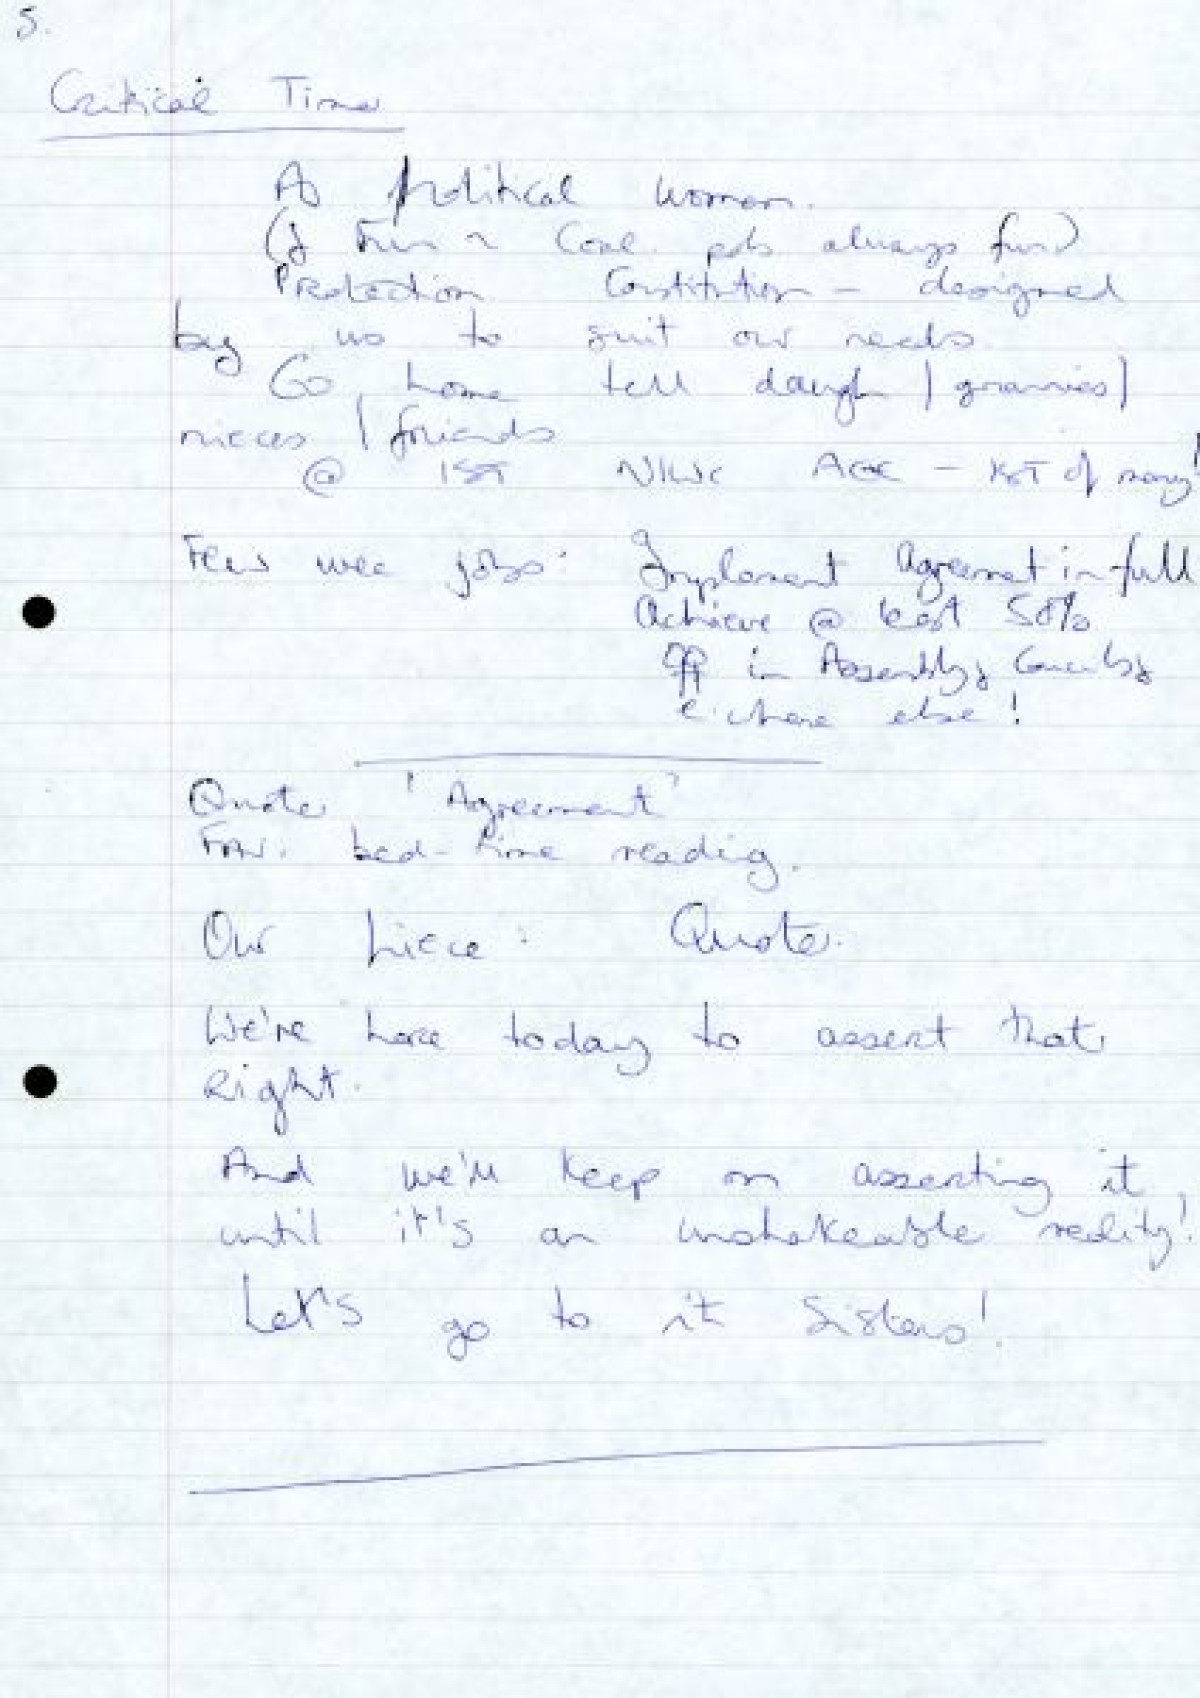 5.
Critical Time
As political women.
(& Fun ~ Coal. pols always fun)
Protection Constitution - designed
by us to suit our needs.
Go home tell daugh / grannies /
nieces / friends
@ 1ST NIWC AGC - 1ST of many!
Few wee jobs: Implement Agreement in full
Achieve @ least 50%
in Assembly, Councils,
e.where else!
Quote 'Agreement'
Fav. bed-time reading.
Our piece: Quote.
We're here today to assert that
Right.
And we'll keep on asserting it
until it's an unshakeable reality!
Let's go to it Sisters!